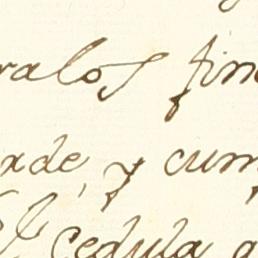 ralos fin
rde, y cum
Cedula a